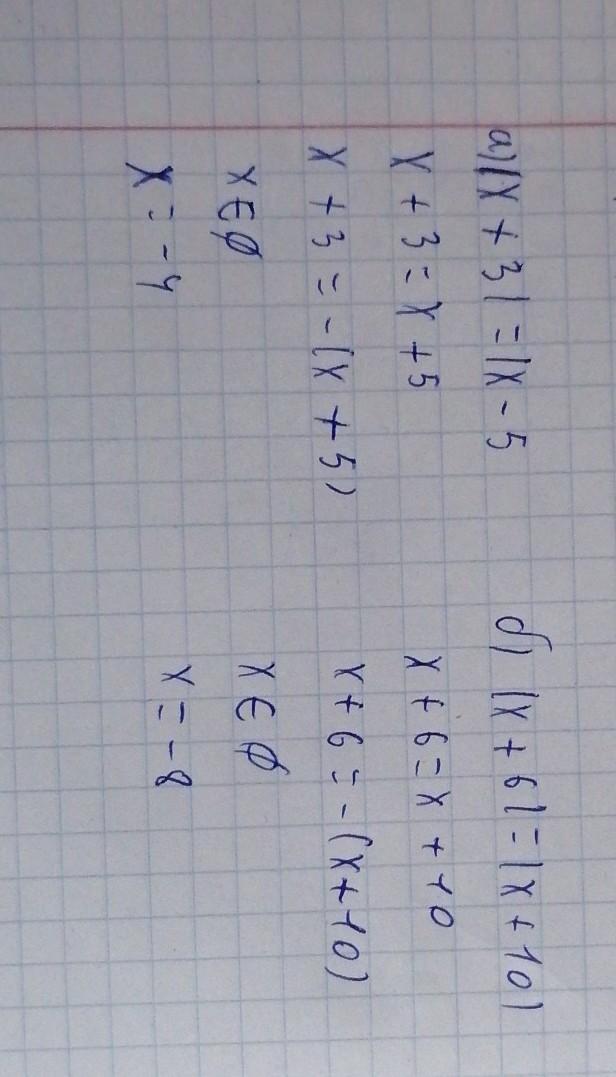 а) |x + 3| = |x - 5
x + 3 = x + 5
x + 3 = - (x + 5)
x ∈ ∅
x = - 4
б) |x + 6| = |x + 10|
x + 6 = x + 10
x + 6 = - (x + 10)
x ∈ ∅
x = - 8